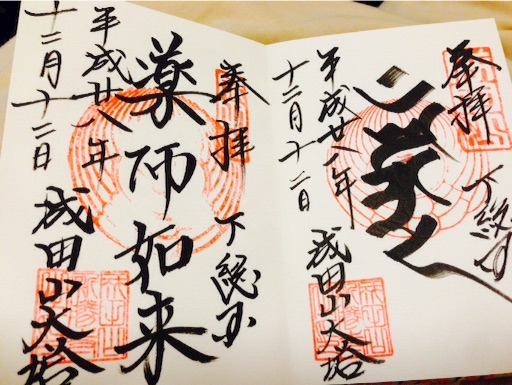 奉拝 下総国
平成廿八年
十二月十二日
成田山大塔
奉拝 下総国
薬師如来
平成廿八年
十二月十二日
成田山大塔